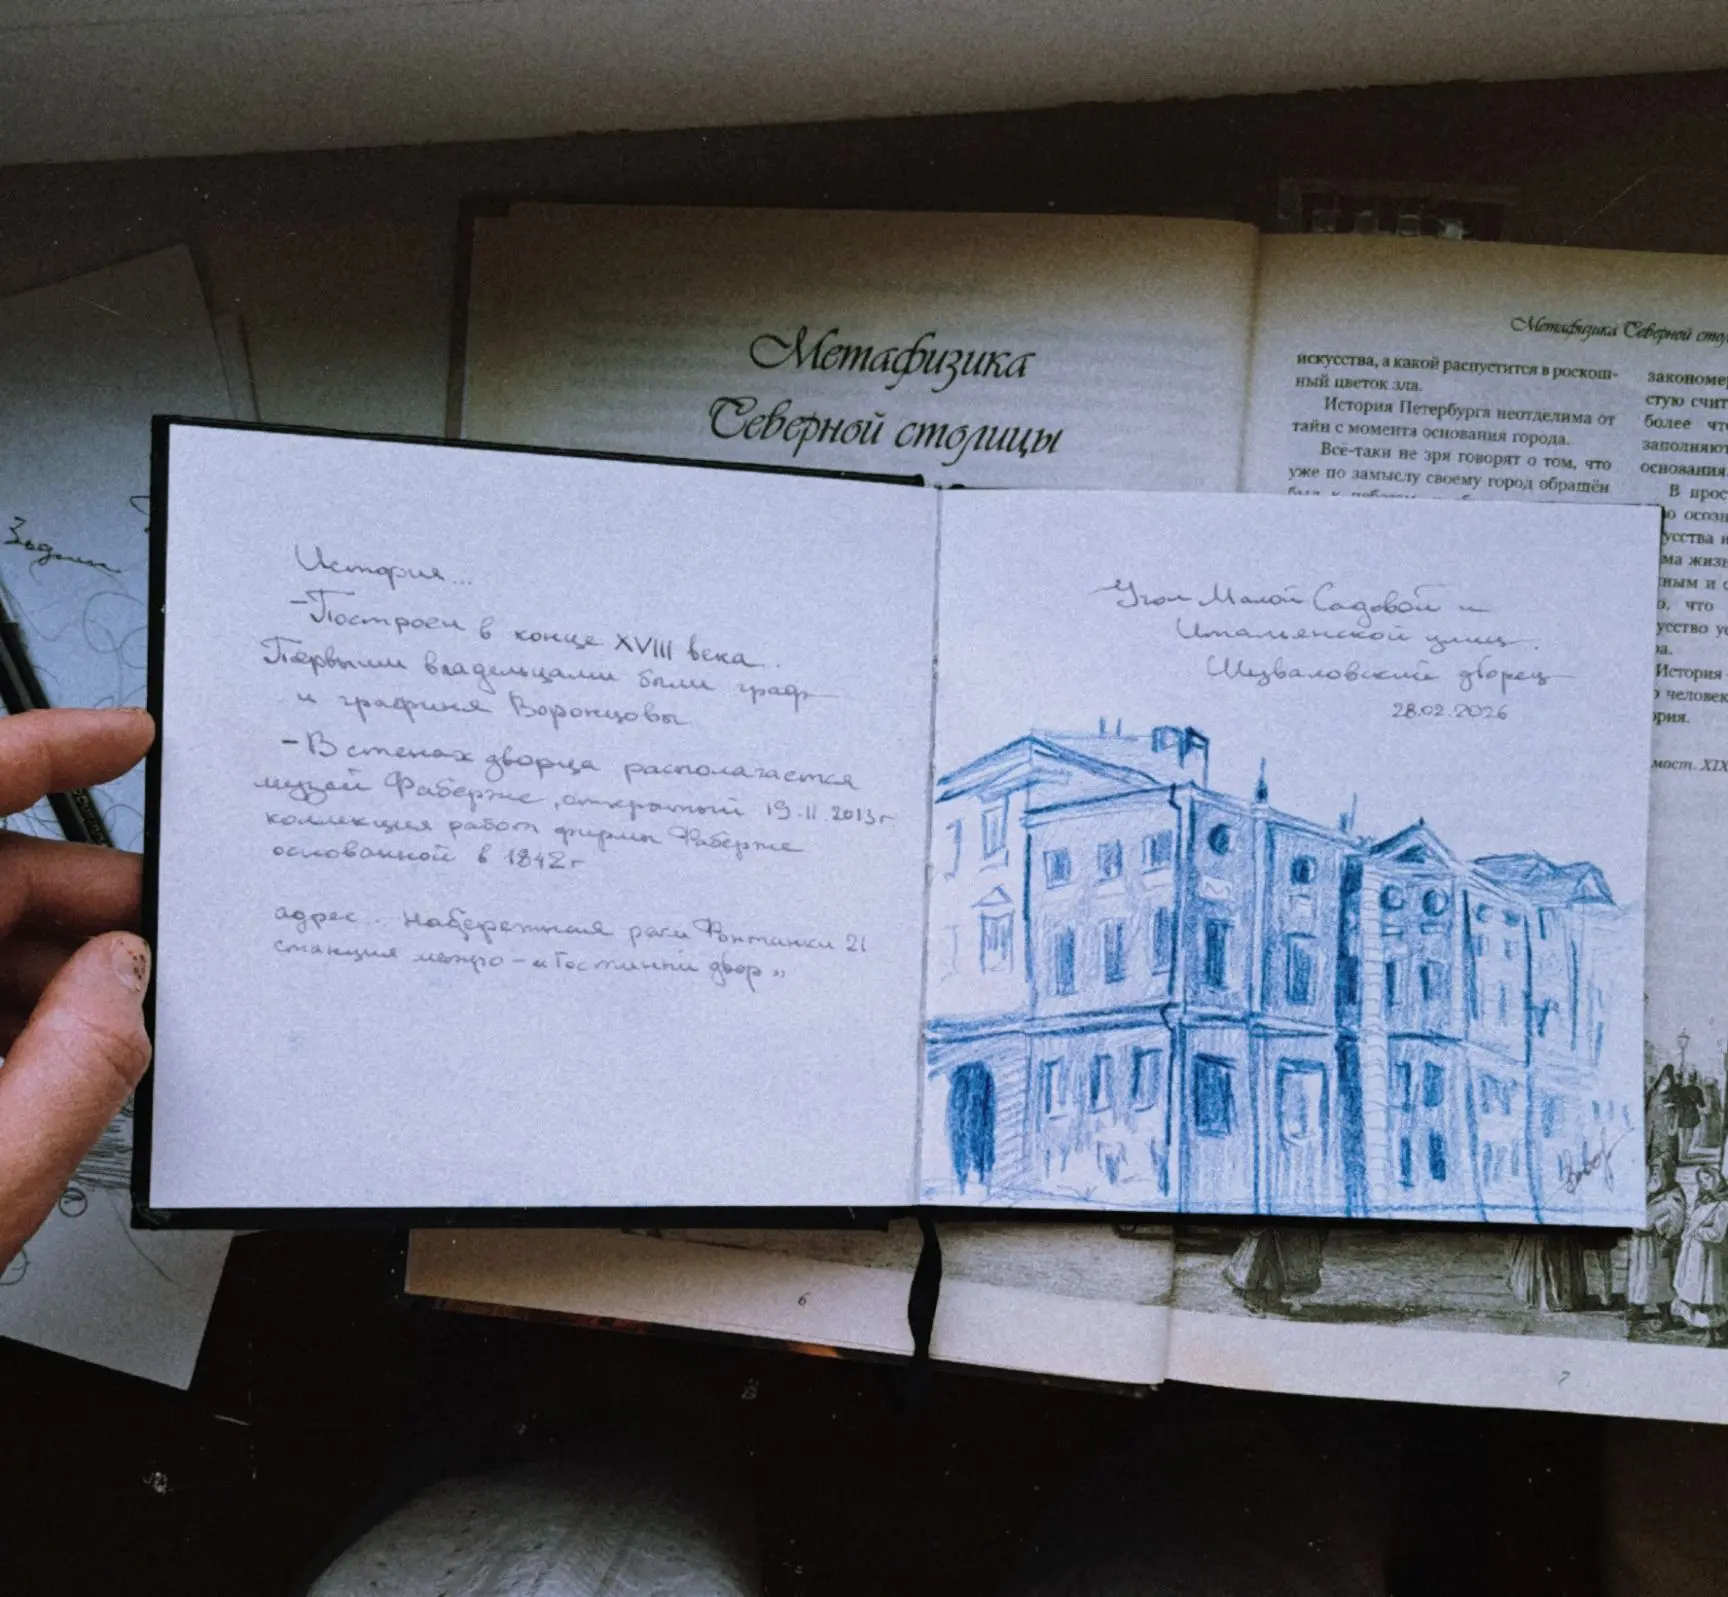 Метафизика
Северной столицы
Метафизика Северной
искусства, а какой распустится в роскош-
ный цветок зла.
История Петербурга неотделима от
тайн с момента основания города.
Всё-таки не зря говорят о том, что
уже по замыслу своему город обращён
закономер
стую счит
более что
заполняют
основания.
В прос
осозн
усства и
ма жизн
ным и с
что
усство ус
История
человек
ория.
мост. XIX
История...
-Построен в конце XVIII века.
Первыми владельцами были граф
и графиня Воронцовы
- В стенах дворца располагается
музей Фаберже, открытый 19.11.2013г
коллекция работ фирмы Фаберже
основанной в 1842г
адрес. набережная реки Фонтанки 21
станция метро - «Гостиный двор»
Угол Малой Садовой и
Итальянской улиц.
Шуваловский дворец
28.02.2026
6
7